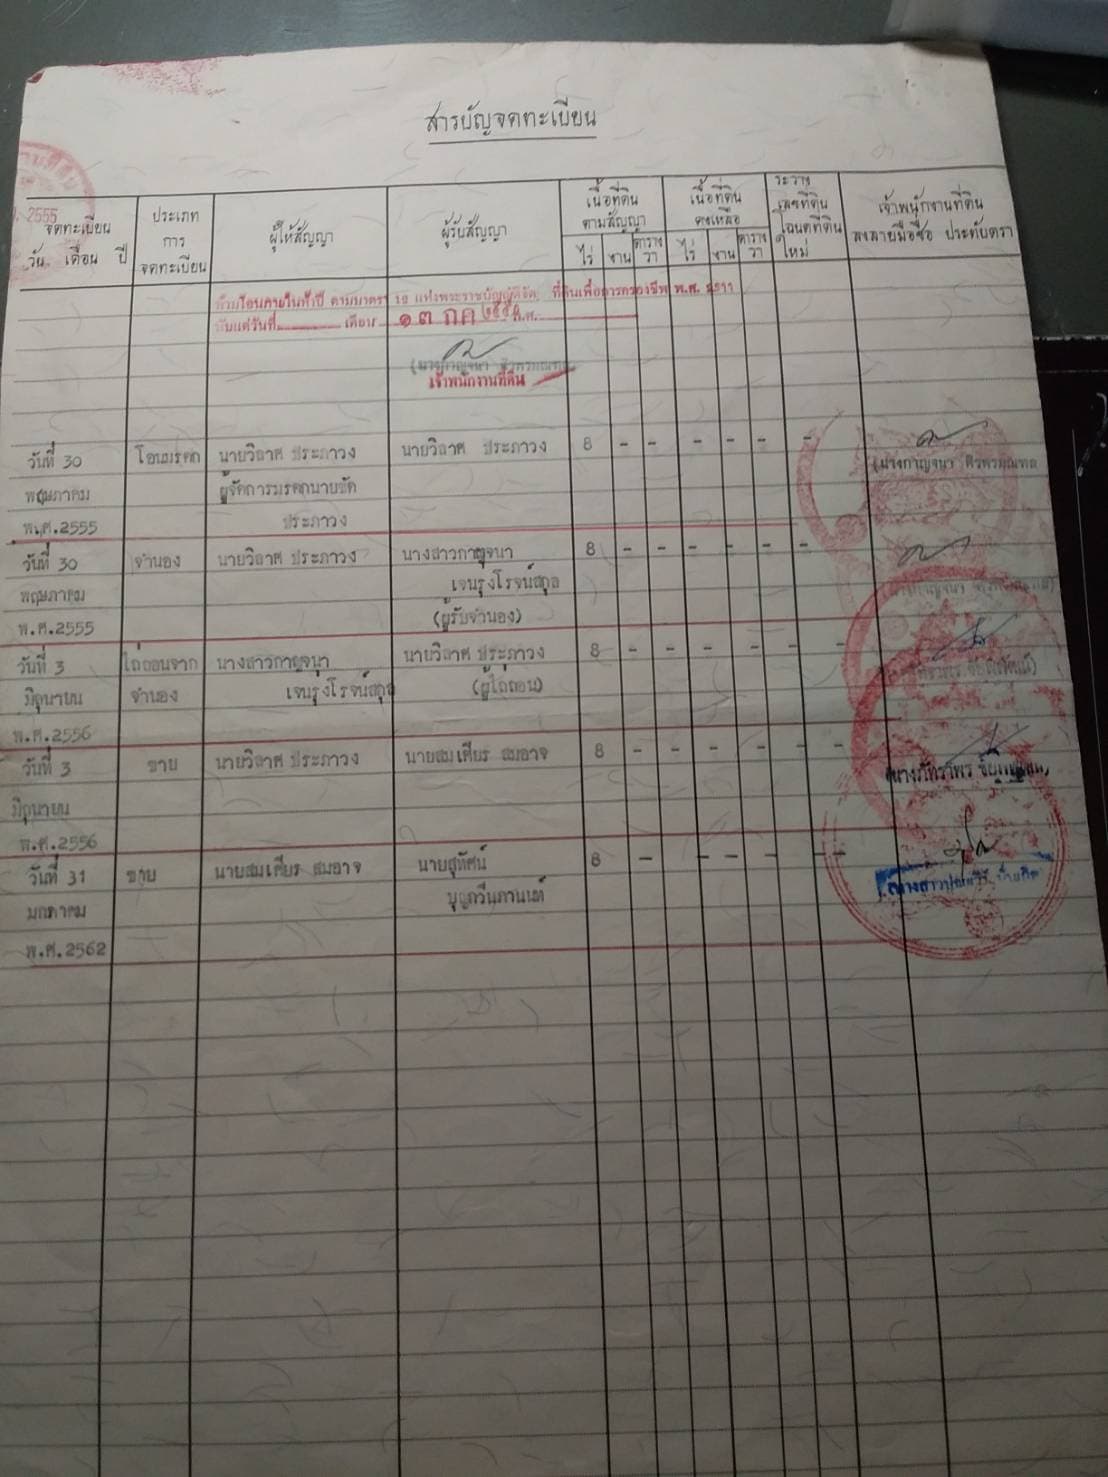 สารบัญจดทะเบียน
2555
จดทะเบียน
วัน เดือน ปี
ประเภท
การ
จดทะเบียน
ผู้ให้สัญญา
ผู้รับสัญญา
เนื้อที่ดิน
ตามสัญญา
ไร่ งาน ตาราง
วา
เนื้อที่ดิน
คงเหลือ
ไร่ งาน ตาราง
วา
ระวาง
เลขที่ดิน
โฉนดที่ดิน
ใหม่
เจ้าพนักงานที่ดิน
ลงลายมือชื่อ ประทับตรา
ห้ามโอนภายในห้าปี ตามมาตรา 12 แห่งพระราชบัญญัติจัด ที่ดินเพื่อการครองชีพ พ.ศ. 2511
นับแต่วันที่ เดือน ๑๓ กค พ.ศ.
เจ้าพนักงานที่ดิน
วันที่ 30 โอนมรดก นายวิลาศ ประภาวง นายวิลาศ ประภาวง 8 - - - - - -
(นางกาญจนา
พฤษภาคม ผู้จัดการมรดกนายชัด
พ.ศ.2555 ประภาวง
วันที่ 30 จำนอง นายวิลาศ ประภาวง นางสาวกาญจนา 8 - - - - - - -
พฤษภาคม เจนรุ่งโรจน์สกุล
พ.ศ.2555 (ผู้รับจำนอง)
วันที่ 3 ไถ่ถอนจาก นางสาวกาญจนา นายวิลาศ ประภาวง 8 - - - - - - -
มิถุนายน จำนอง เจนรุ่งโรจน์สกุล (ผู้ไถ่ถอน)
พ.ศ.2556
วันที่ 3 ขาย นายวิลาศ ประภาวง นายสมเศียร สมอาจ 8 - - - - - -
มิถุนายน
พ.ศ.2556
วันที่ 31 ขาย นายสมเศียร สมอาจ นายสุทัศน์ 8 - - - - - -
มกราคม
พ.ศ.2562